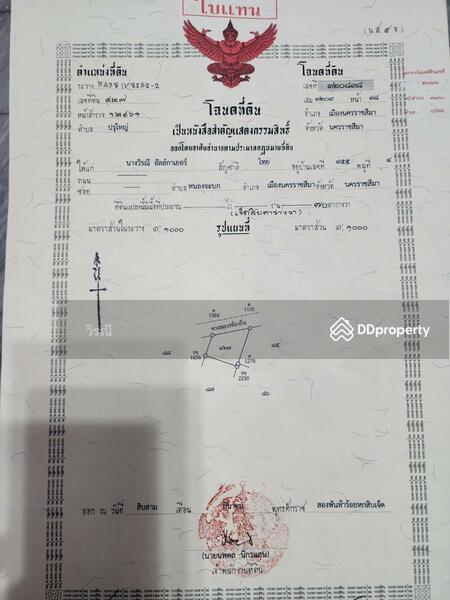 ใบแทน
(น.ส.๔ จ.)
ตำแหน่งที่ดิน
ระวาง 5438 IV 8252-2
เลขที่ดิน ๔๒๗
หน้าสำรวจ ๑๒๙๖๑
ตำบล ปรุใหญ่
โฉนดที่ดิน
เลขที่ ๓๒๐๘๓๘
เล่ม ๓๒๐๙ หน้า ๓๘
อำเภอ เมืองนครราชสีมา
จังหวัด นครราชสีมา
โฉนดที่ดิน
เป็นหนังสือสำคัญแสดงกรรมสิทธิ์
ออกโดยอาศัยอำนาจตามประมวลกฎหมายที่ดิน
ให้แก่ นางวิรณี อัลล์กาเยอร์ สัญชาติ ไทย อยู่บ้านเลขที่ ๓๕๕ หมู่ที่ ๔
ถนน
ซอย ตำบล หนองจะบก อำเภอ เมืองนครราชสีมา จังหวัด นครราชสีมา
ที่ดินแปลงนี้มีเนื้อที่ประมาณ ไร่ งาน ๗๐ ตารางวา
(เจ็ดสิบตารางวา)
มาตราส่วนในระวาง ๑:๑๐๐๐ รูปแผนที่ มาตราส่วน ๑:๑๐๐๐
น
วิรณี
DDproperty
1566 1135
ทางหลวงท้องถิ่น
๔๒๗
๘๘ ๘๕
1656 1276
2230
๘๗ ๘๖
ออก ณ วันที่ สิบสาม เดือน มีนาคม พุทธศักราช สองพันห้าร้อยหกสิบเจ็ด
(นายนพดล นิกรแสน)
เจ้าพนักงานที่ดิน